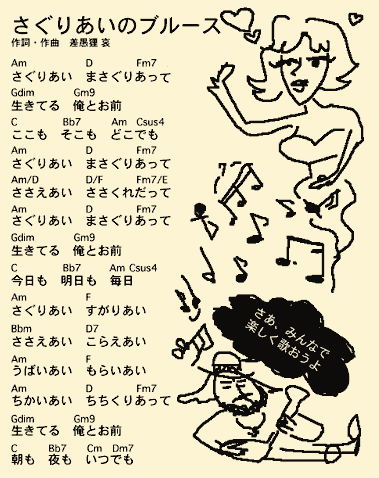 さぐりあいのブルース
作詞・作曲　差愚狸 哀
Am D Fm7
さぐりあい　まさぐりあって
Gdim Gm9
生きてる　俺とお前
C Bb7 Am Csus4
ここも　そこも　どこでも
Am D Fm7
さぐりあい　まさぐりあって
Am/D D/F Fm7/E
ささえあい　ささくれだって
Am D Fm7
さぐりあい　まさぐりあって
Gdim Gm9
生きてる　俺とお前
C Bb7 Am Csus4
今日も　明日も　毎日
Am F
さぐりあい　すがりあい
Bbm D7
ささえあい　こらえあい
Am F
うばいあい　もらいあい
Am D Fm7
ちかいあい　ちちくりあって
Gdim Gm9
生きてる　俺とお前
C Bb7 Cm Dm7
朝も　夜も　いつでも
さあ、みんなで
楽しく歌おうよ